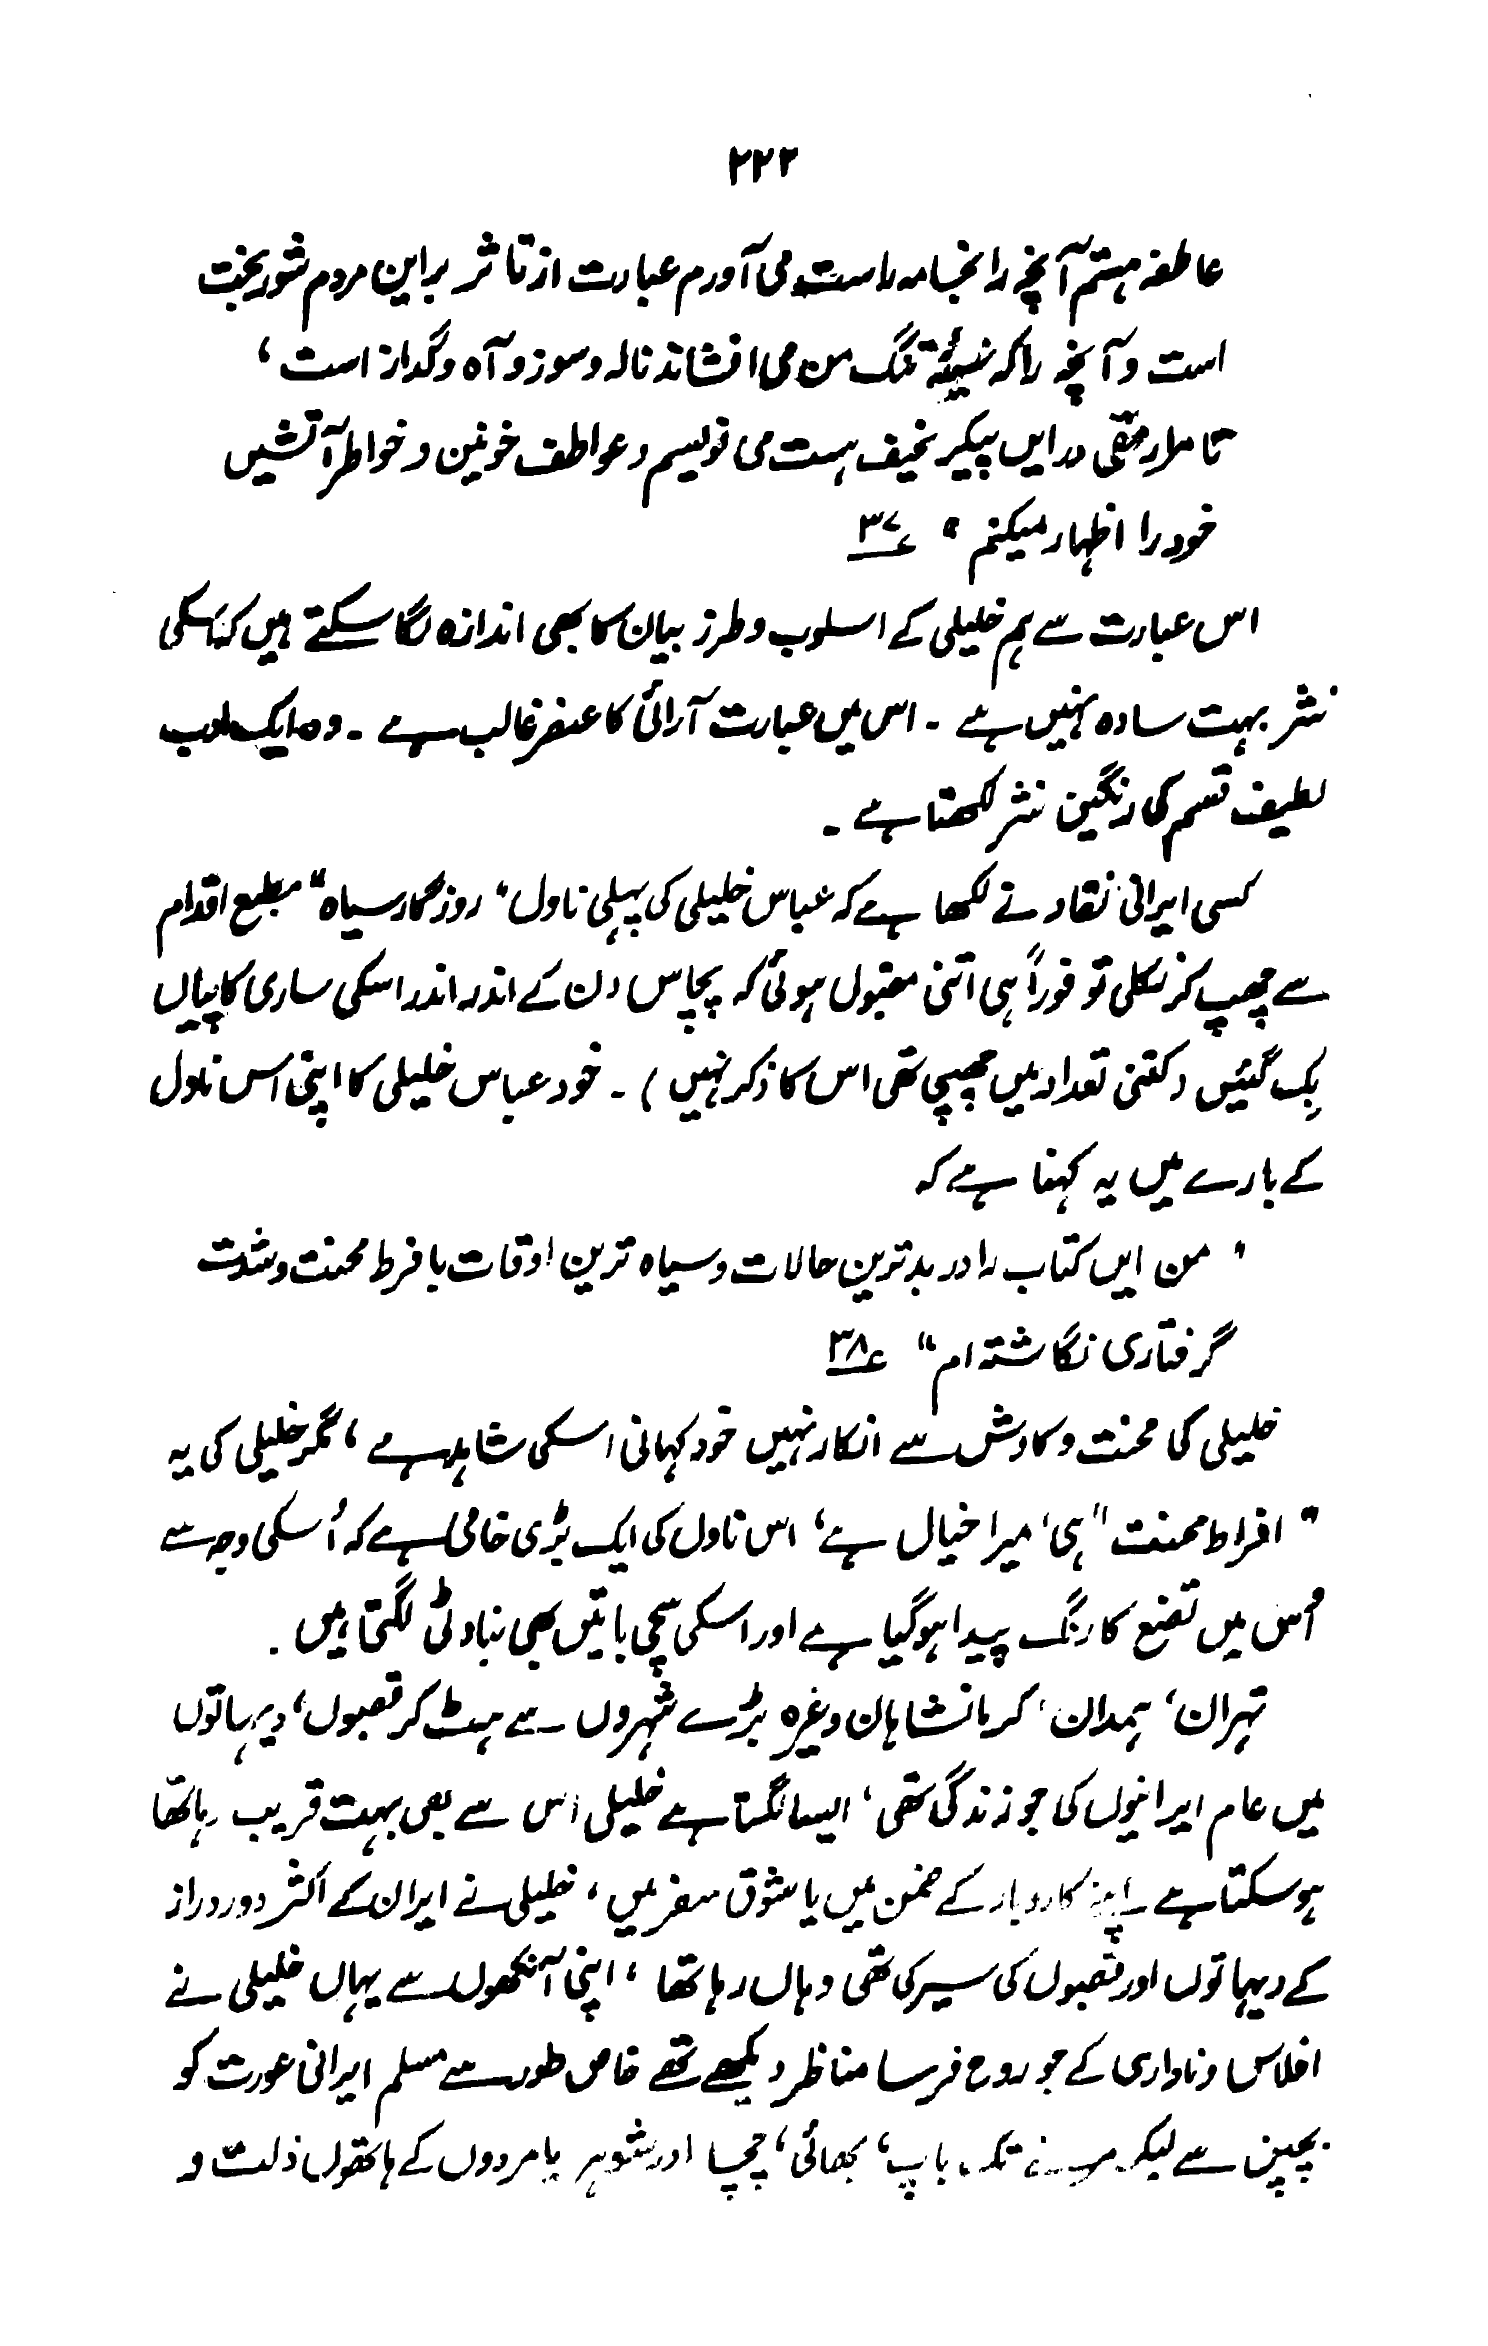 ۲۲۲
عاطفہ ہستم آنچہ را بخامہ راست می آورم عبارت از تاثر براین مردم شوربخت
است و آنچہ را کہ سینۂ تنگ من می افشاند نالہ و سوز و آہ و گداز است ‘
تا مرا رمقی در ایں پیکر نحیف ہست می نویسم و عواطف خونین و خواطر آتشیں
خود را اظہار میکنم " ؏۳۷
اس عبارت سے ہم خلیلی کے اسلوب و طرز بیان کا بھی اندازہ لگا سکتے ہیں کہ اسکی
نثر بہت سادہ نہیں ہے ۔ اس میں عبارت آرائی کا عنصر غالب ہے ۔ وہ ایک ادب
لطیف قسم کی رنگین نثر لکھتا ہے ۔
کسی ایرانی نقاد نے لکھا ہے کہ عباس خلیلی کی پہلی ناول " روزگار سیاہ " مطبع اقدام
سے چھپ کر نکلی تو فوراً ہی اتنی مقبول ہوئی کہ پچاس دن کے اندر اندر اسکی ساری کاپیاں
بِک گئیں ( کتنی تعداد میں چھپی تھی اس کا ذکر نہیں ) ۔ خود عباس خلیلی کا اپنی اس ناول
کے بارے میں یہ کہنا ہے کہ
" من ایں کتاب را در بدترین حالات و سیاہ ترین اوقات با فرط محنت و شدت
گرفتاری نگاشتہ ام " ؏۳۸
خلیلی کی محنت و کاوش سے انکار نہیں خود کہانی اسکی شاہد ہے ‘ مگر خلیلی کی یہ
" افراط محنت " ہی ‘ میرا خیال ہے ‘ اس ناول کی ایک بڑی خامی ہے کہ اُسکی وجہ سے
اُس میں تصنع کا رنگ پیدا ہو گیا ہے اور اسکی سچی باتیں بھی بناوٹی لگتی ہیں .
تہران ‘ ہمدان ‘ کرمانشاہان وغیرہ بڑے شہروں سے ہٹ کر قصبوں ‘ دیہاتوں
میں عام ایرانیوں کی جو زندگی تھی ‘ ایسا لگتا ہے خلیلی اس سے بھی بہت قریب رہا تھا
ہو سکتا ہے اپنے کاروبار کے ضمن میں یا شوق سفر میں ‘ خلیلی نے ایران کے اکثر دور دراز
کے دیہاتوں اور قصبوں کی سیر کی تھی وہاں رہا تھا ‘ اپنی آنکھوں سے یہاں خلیلی نے
افلاس و ناداری کے جو روح فرسا مناظر دیکھے تھے خاص طور سے مسلم ایرانی عورت کو
بچپن سے لیکر مرنے تک باپ ‘ بھائی ‘ چچا اور شوہر یا مردوں کے ہاتھوں ذلت و